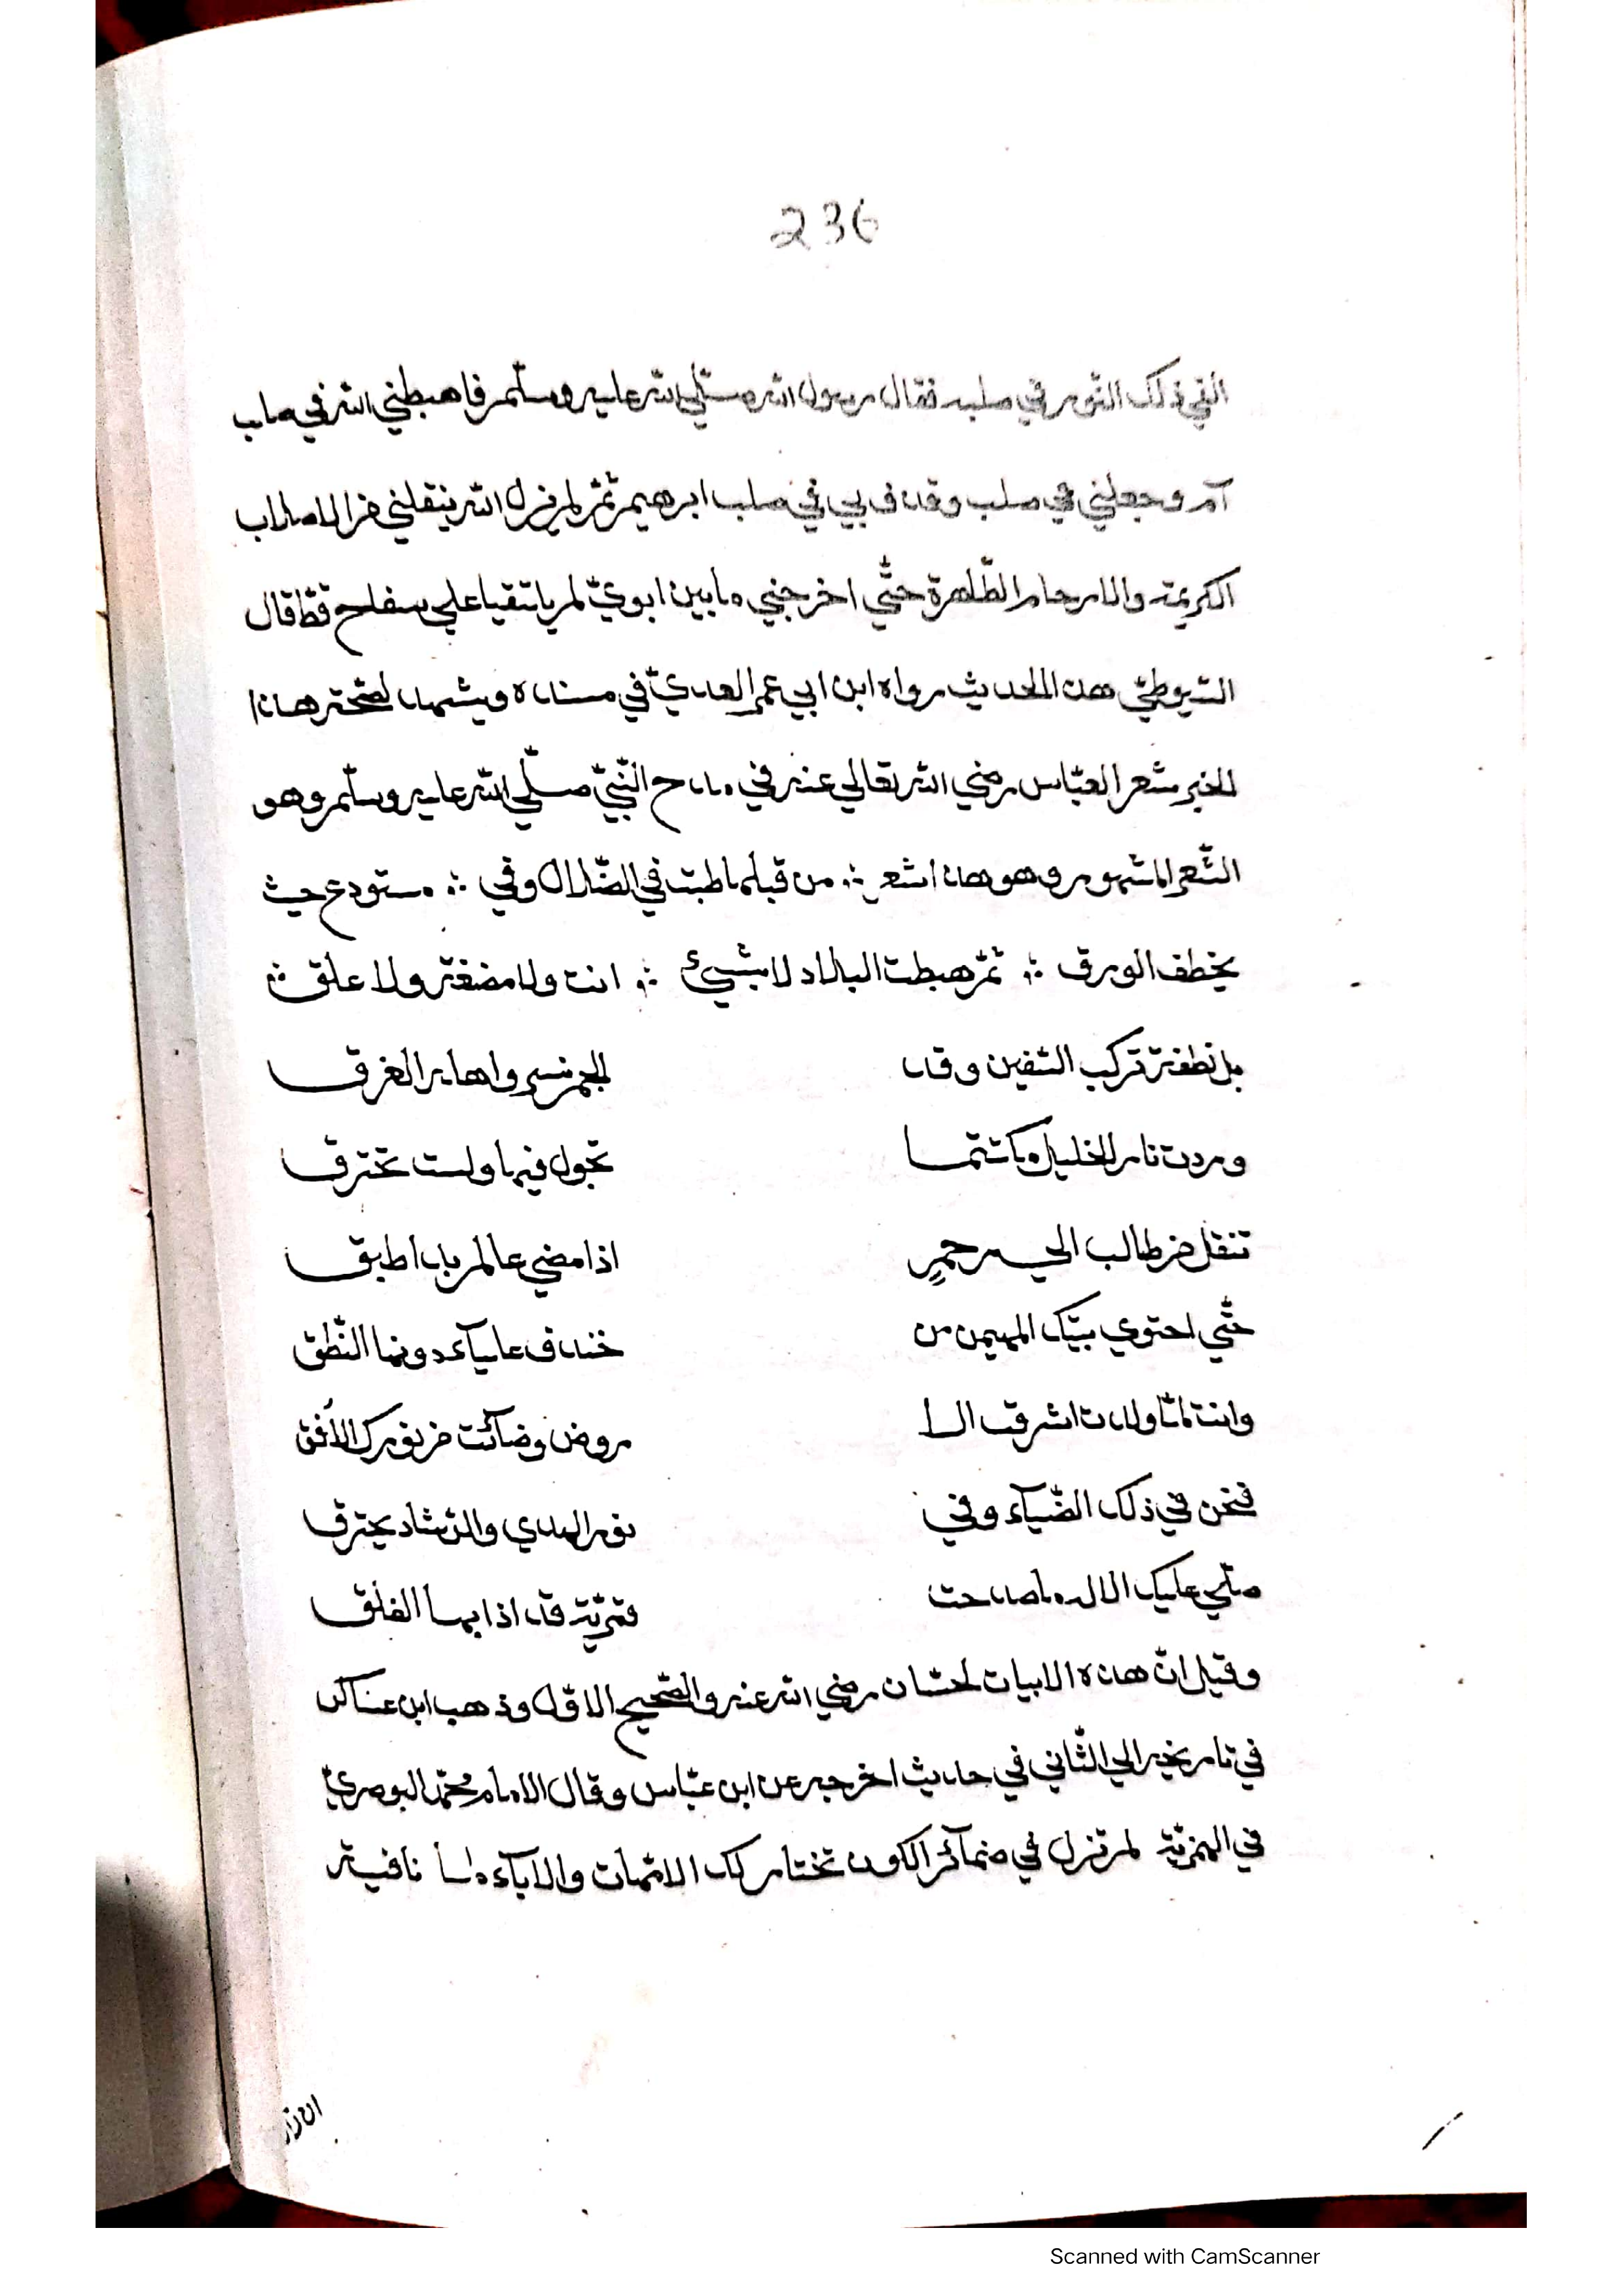 236
القي ذلك النّور في صلبه فقال رسول الله صلّي الله عليه وسلّم فاهبطني الله في صلب
آدم وجعلني في صلب وقذف بي في صلب ابرهيم ثمّ لم يزل الله ينقلني من الاصلاب
الكريمة والارحام الطّاهرة حتّي اخرجني مابين ابويّ لم يلتقيا علي سفاح قطّ قال
السّيوطيّ هذا الحديث رواه ابن ابي عمر العدنيّ في مسنده ويشهد لصحّة هذا
الخبر شعر العبّاس رضي الله تعالي عنه في مدح النّبيّ صلّي الله عليه وسلّم وهو
الشّعر المشهور وهو هذا شعر ؞ من قبلها طبت في الضّلال وفي ؞ مستودع حيث
يخطف الورق ؞ ثمّ هبطت البلاد لا بشيئ ؞ انت ولا مضغة ولا علق ؞
بل نطفة تركب السّفين وقد الجم نسر واهله الغرق
وردت نار الخليل مكتتما تجول فيها ولست تحترق
تنقل من طالب الي رحم اذا مضي عالم بدا طبق
حتّي احتوي بيتك المهيمن من خندف علياء دونها النّطق
وانت لمّا ولدت اشرقت الا روض وضائت من نورك الافق
فنحن في ذلك الضّياء وفي نور الهدي والرّشاد يخترق
صلّي عليك الاله ماصدحت قمريّة قد اذا بها الفلق
وقيل انّ هذه الابيات لحسّان رضي الله عنه والصّحيح الاوّل وذهب ابن عساكر
في تاريخه الي الثّاني في حديث اخرجه عن ابن عبّاس وقال الامام محمّد البوصريّ
في الهمزيّة لم تزل في ضمآئر الكون تختار لك الامّهات والآباء نافية
Scanned with CamScanner